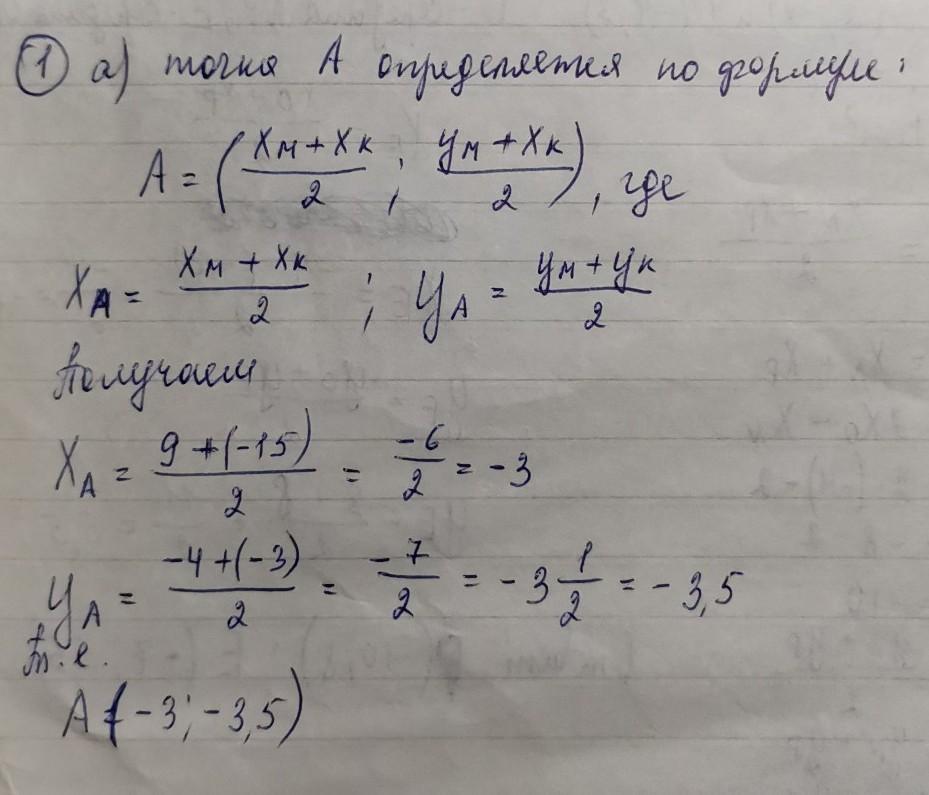 ① а) точка А определяется по формуле:
A = ((xм + xк)/2 ; (yм + xк)/2), где
xA = (xм + xк)/2 ; yA = (yм + yк)/2
Получаем
xA = (9 + (-15))/2 = -6/2 = -3
yA = (-4 + (-3))/2 = -7/2 = -3 1/2 = -3,5
т.е.
A(-3; -3,5)